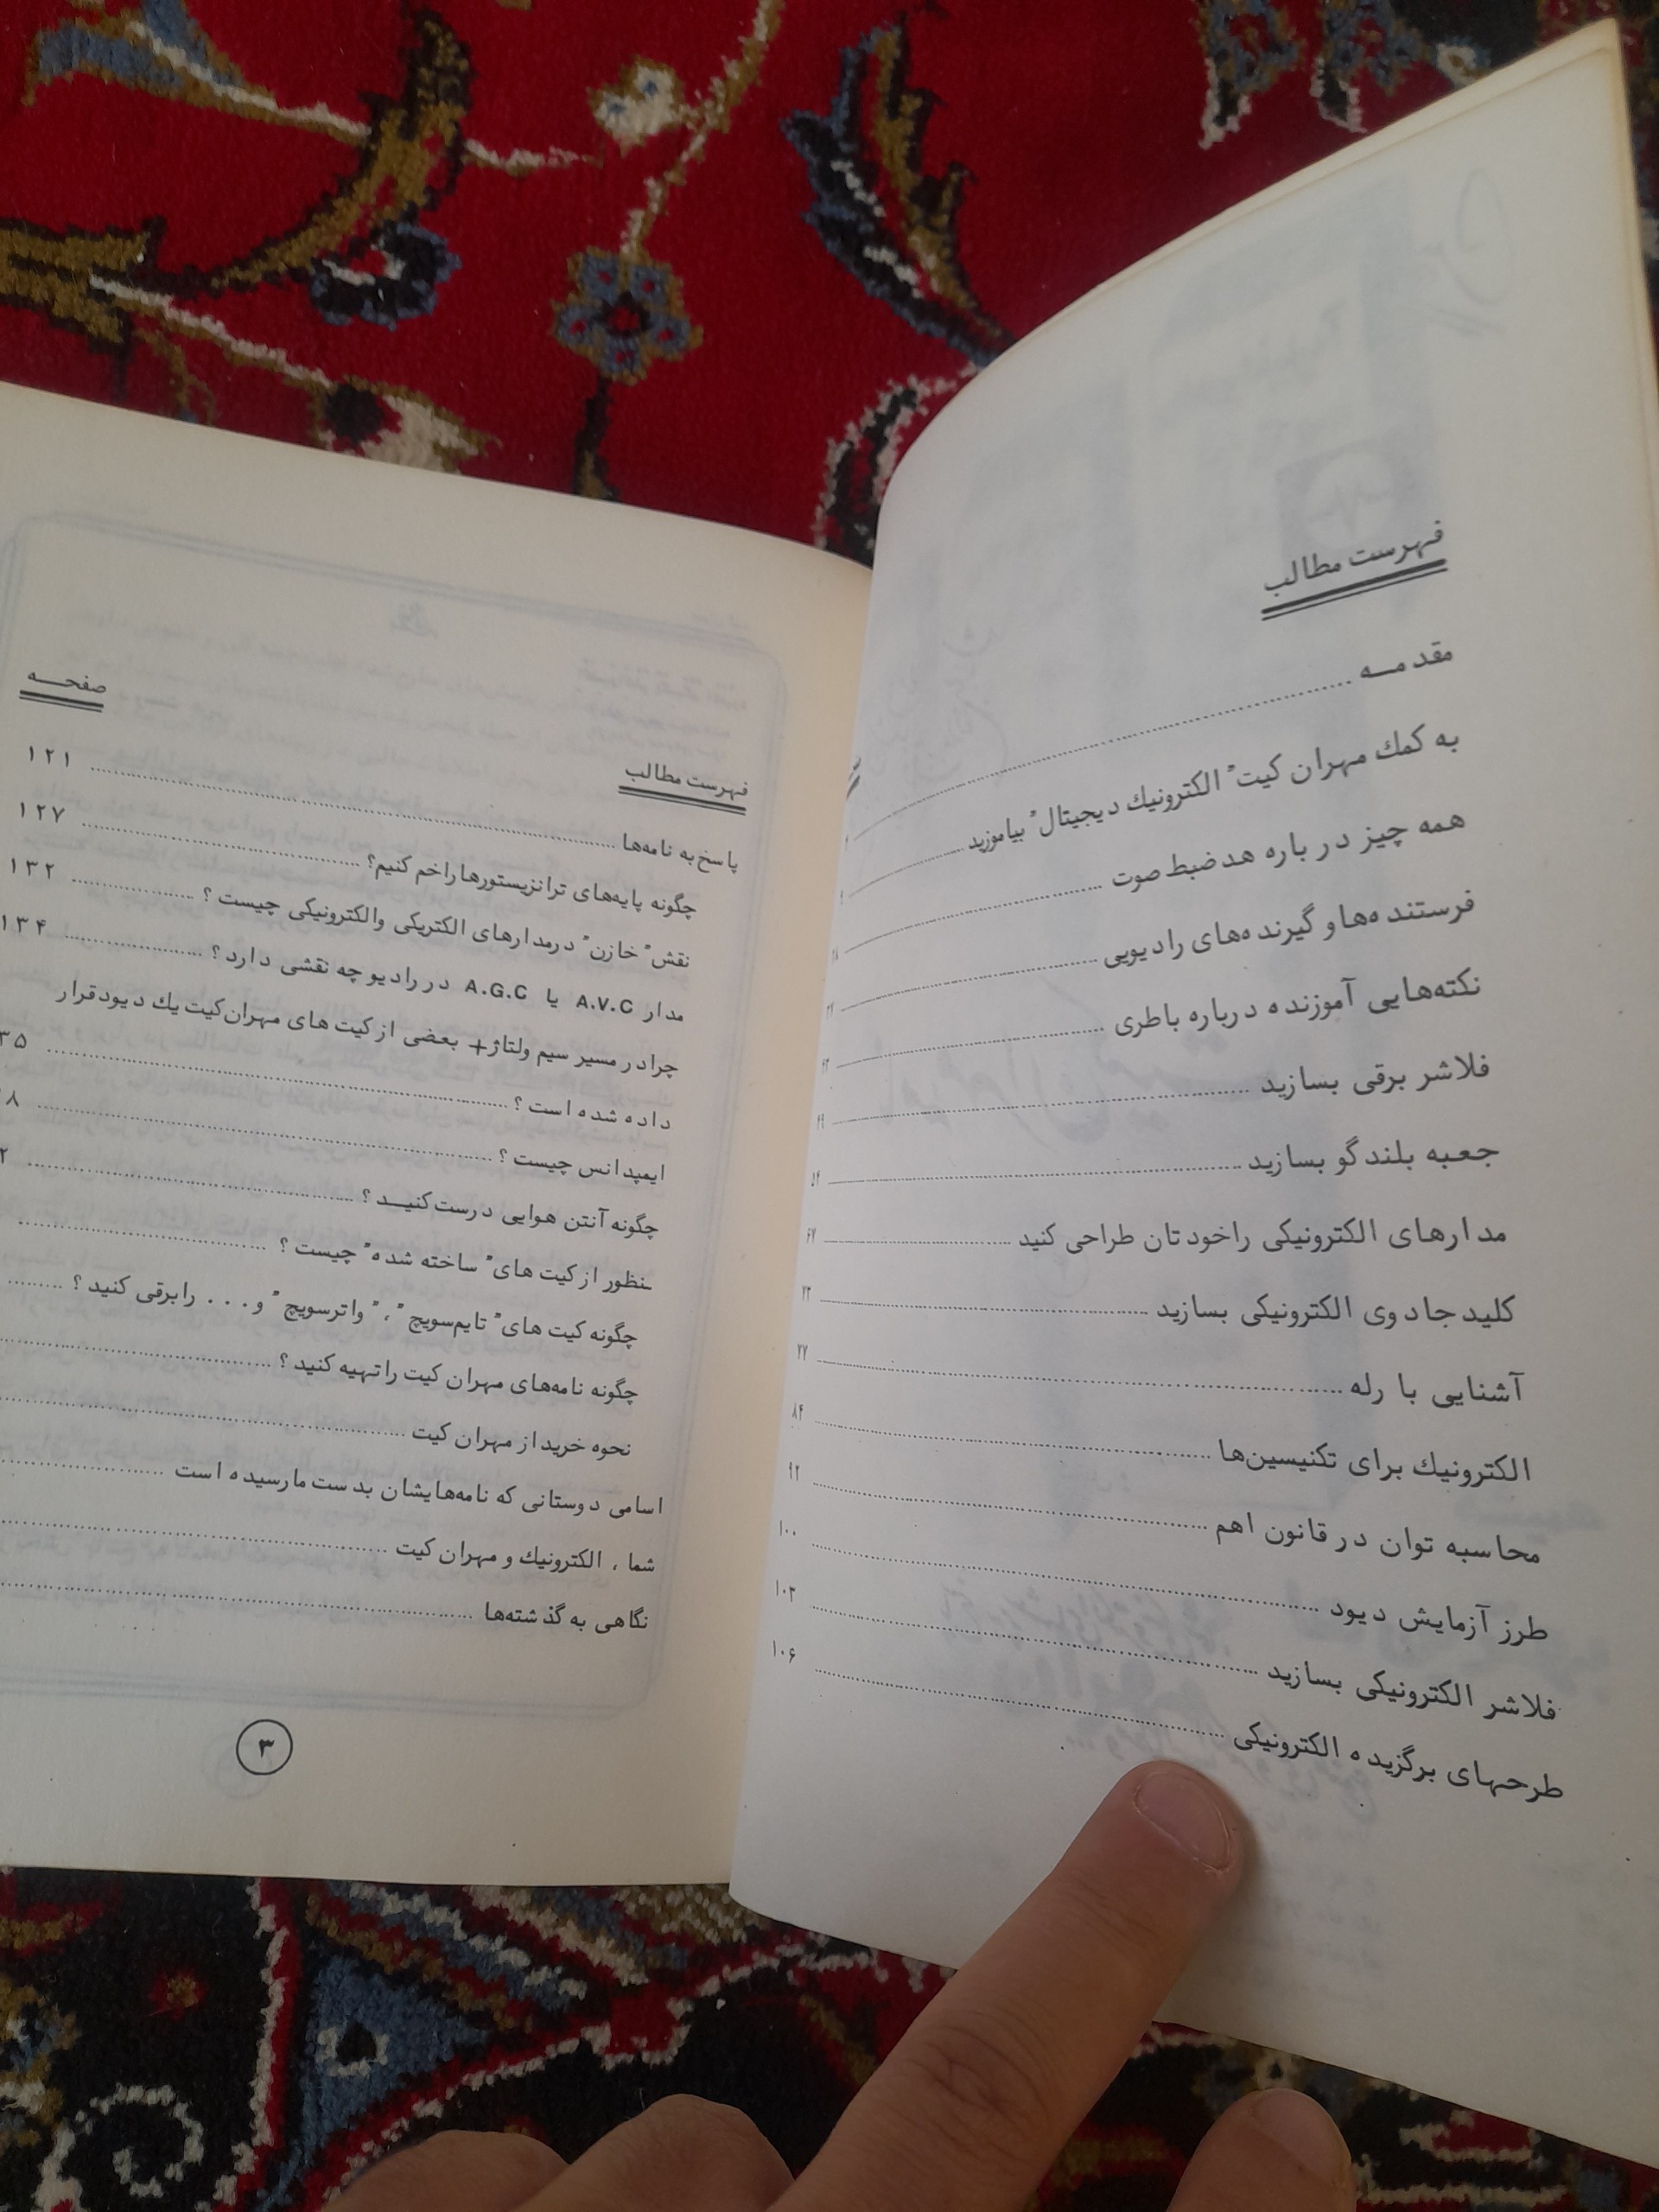 فهرست مطالب
مقدمه
به کمك مهران کیت "الکترونیك دیجیتال" بیاموزید
همه چیز در باره هد ضبط صوت
فرستنده‌ها و گیرنده‌های رادیویی
نکته‌هایی آموزنده درباره باطری
فلاشر برقی بسازید ۴۹
جعبه بلندگو بسازید ۵۴
مدارهای الکترونیکی را خودتان طراحی کنید ۶۷
کلید جادوی الکترونیکی بسازید
آشنایی با رله ۷۷
الکترونیك برای تکنیسین‌ها ۸۴
محاسبه توان در قانون اهم ۹۲
طرز آزمایش دیود ۱۰۰
فلاشر الکترونیکی بسازید ۱۰۳
طرحهای برگزیده الکترونیکی ۱۰۶
فهرست مطالب صفحه
پاسخ به نامه‌ها ۱۲۱
چگونه پایه‌های ترانزیستورها را خم کنیم؟ ۱۲۷
نقش "خازن" در مدارهای الکتریکی و الکترونیکی چیست؟ ۱۳۲
مدار A.V.C یا A.G.C در رادیو چه نقشی دارد؟ ۱۳۴
چرا در مسیر سیم ولتاژ + بعضی از کیت های مهران‌کیت یك دیود قرار
داده شده است؟ ۳۵
ایمپدانس چیست؟ ۸
چگونه آنتن هوایی درست کنیـد؟ ۲
منظور از کیت های "ساخته شده" چیست؟
چگونه کیت های "تایم‌سویچ"، "واترسویچ" و... را برقی کنید؟
چگونه نامه‌های مهران کیت را تهیه کنید؟
نحوه خرید از مهران کیت
اسامی دوستانی که نامه‌هایشان بدست ما رسیده است
شما، الکترونیك و مهران کیت
نگاهی به گذشته‌ها
۳